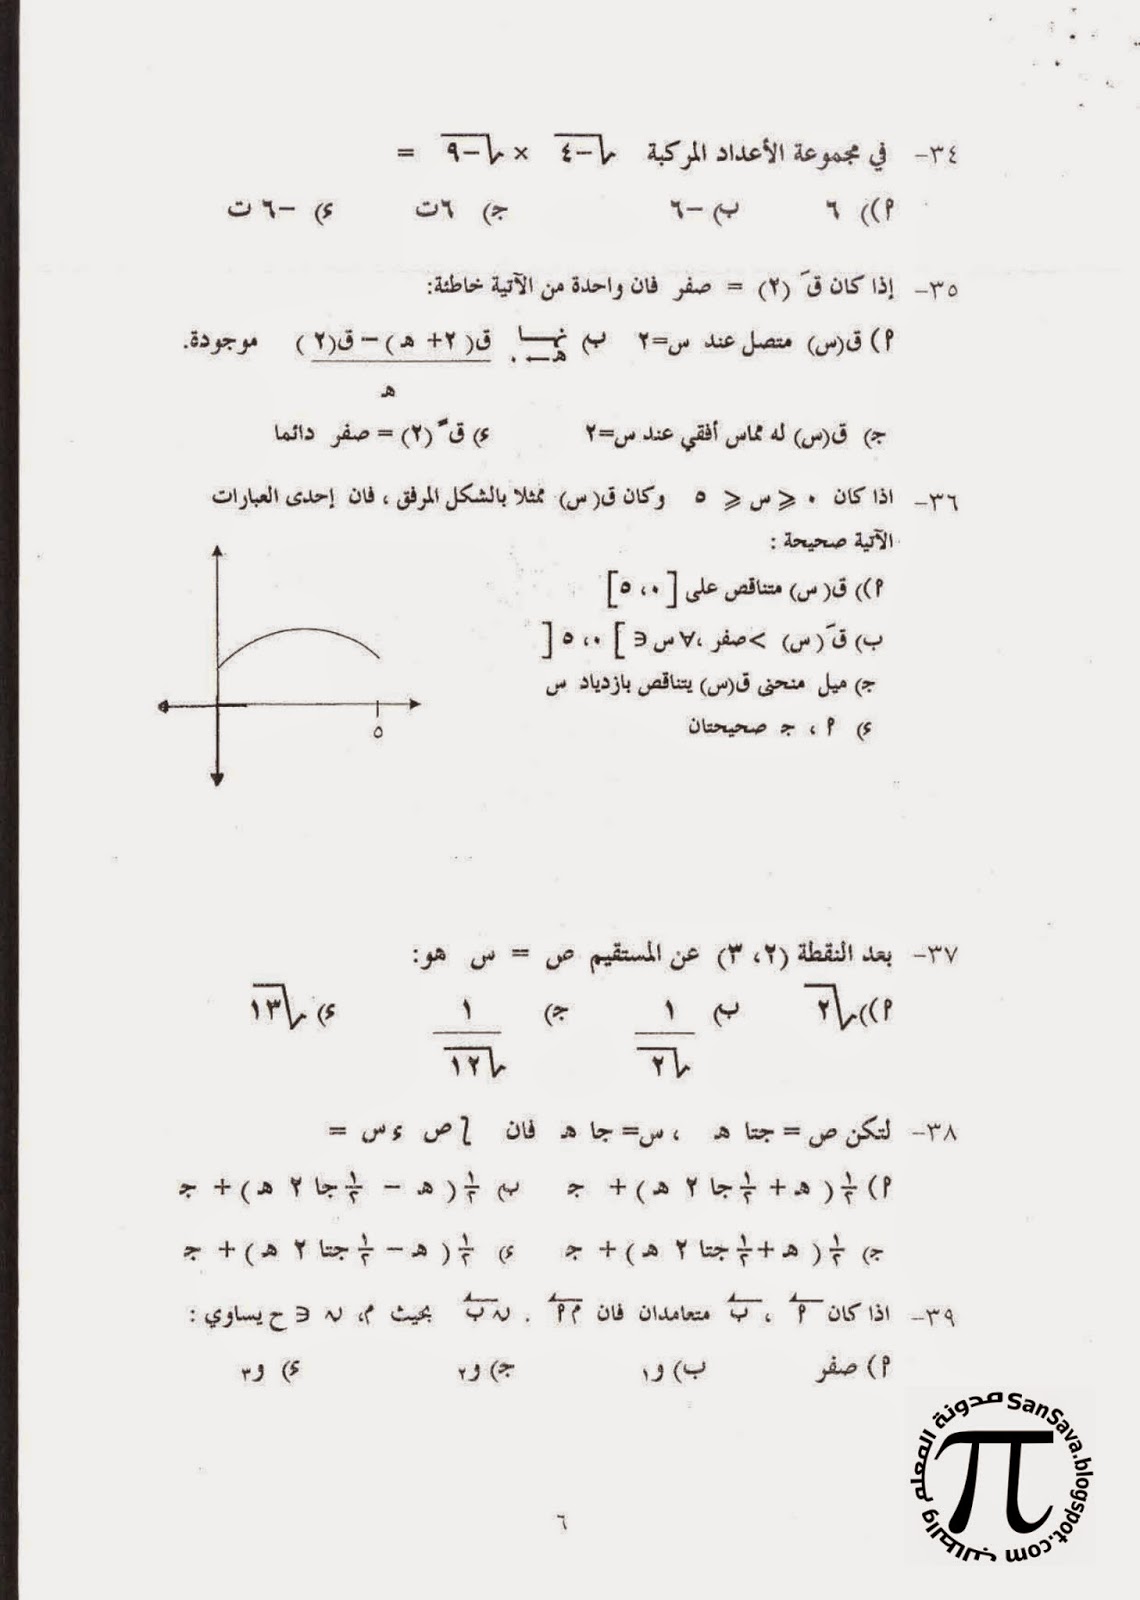 ٣٤- في مجموعة الأعداد المركبة √-٤ × √-٩ =
أ) ٦ ب) -٦ ج) ٦ت د) -٦ ت
٣٥- إذا كان قَ (٢) = صفر فان واحدة من الآتية خاطئة:
أ) ق(س) متصل عند س=٢ ب) نهـــا هـ←٠ ق(٢+ هـ) – ق(٢) / هـ موجودة.
ج) ق(س) له مماس أفقي عند س=٢ د) قً (٢) = صفر دائما
٣٦- اذا كان ٠ ⩽ س ⩽ ٥ وكان ق(س) ممثلا بالشكل المرفق ، فان إحدى العبارات
الآتية صحيحة :
أ) ق(س) متناقص على [٠، ٥]
ب) قَ (س) > صفر ، ∀ س ∈ ]٠، ٥[
ج) ميل منحنى ق(س) يتناقص بازدياد س
د) أ ، ج صحيحتان
٥
٣٧- بعد النقطة (٢، ٣) عن المستقيم ص = س هو:
أ) √٢ ب) ١/√٢ ج) ١/√١٢ د) √١٣
٣٨- لتكن ص = جتا هـ ، س= جا هـ فان ∫ ص ءس =
أ) ١/٢ ( هـ + ١/٢ جا ٢ هـ) + جـ ب) ١/٢ ( هـ – ١/٢ جا ٢ هـ) + جـ
ج) ١/٢ ( هـ + ١/٢ جتا ٢ هـ) + جـ د) ١/٢ ( هـ – ١/٢ جتا ٢ هـ) + جـ
٣٩- اذا كان أ ، ب متعامدان فان م أ . ن ب بحيث م، ن ∈ ح يساوي :
أ) صفر ب) و١ ج) و٢ د) و٣
٦
مدونة المعلم والطالب SanSava.blogspot.com
π